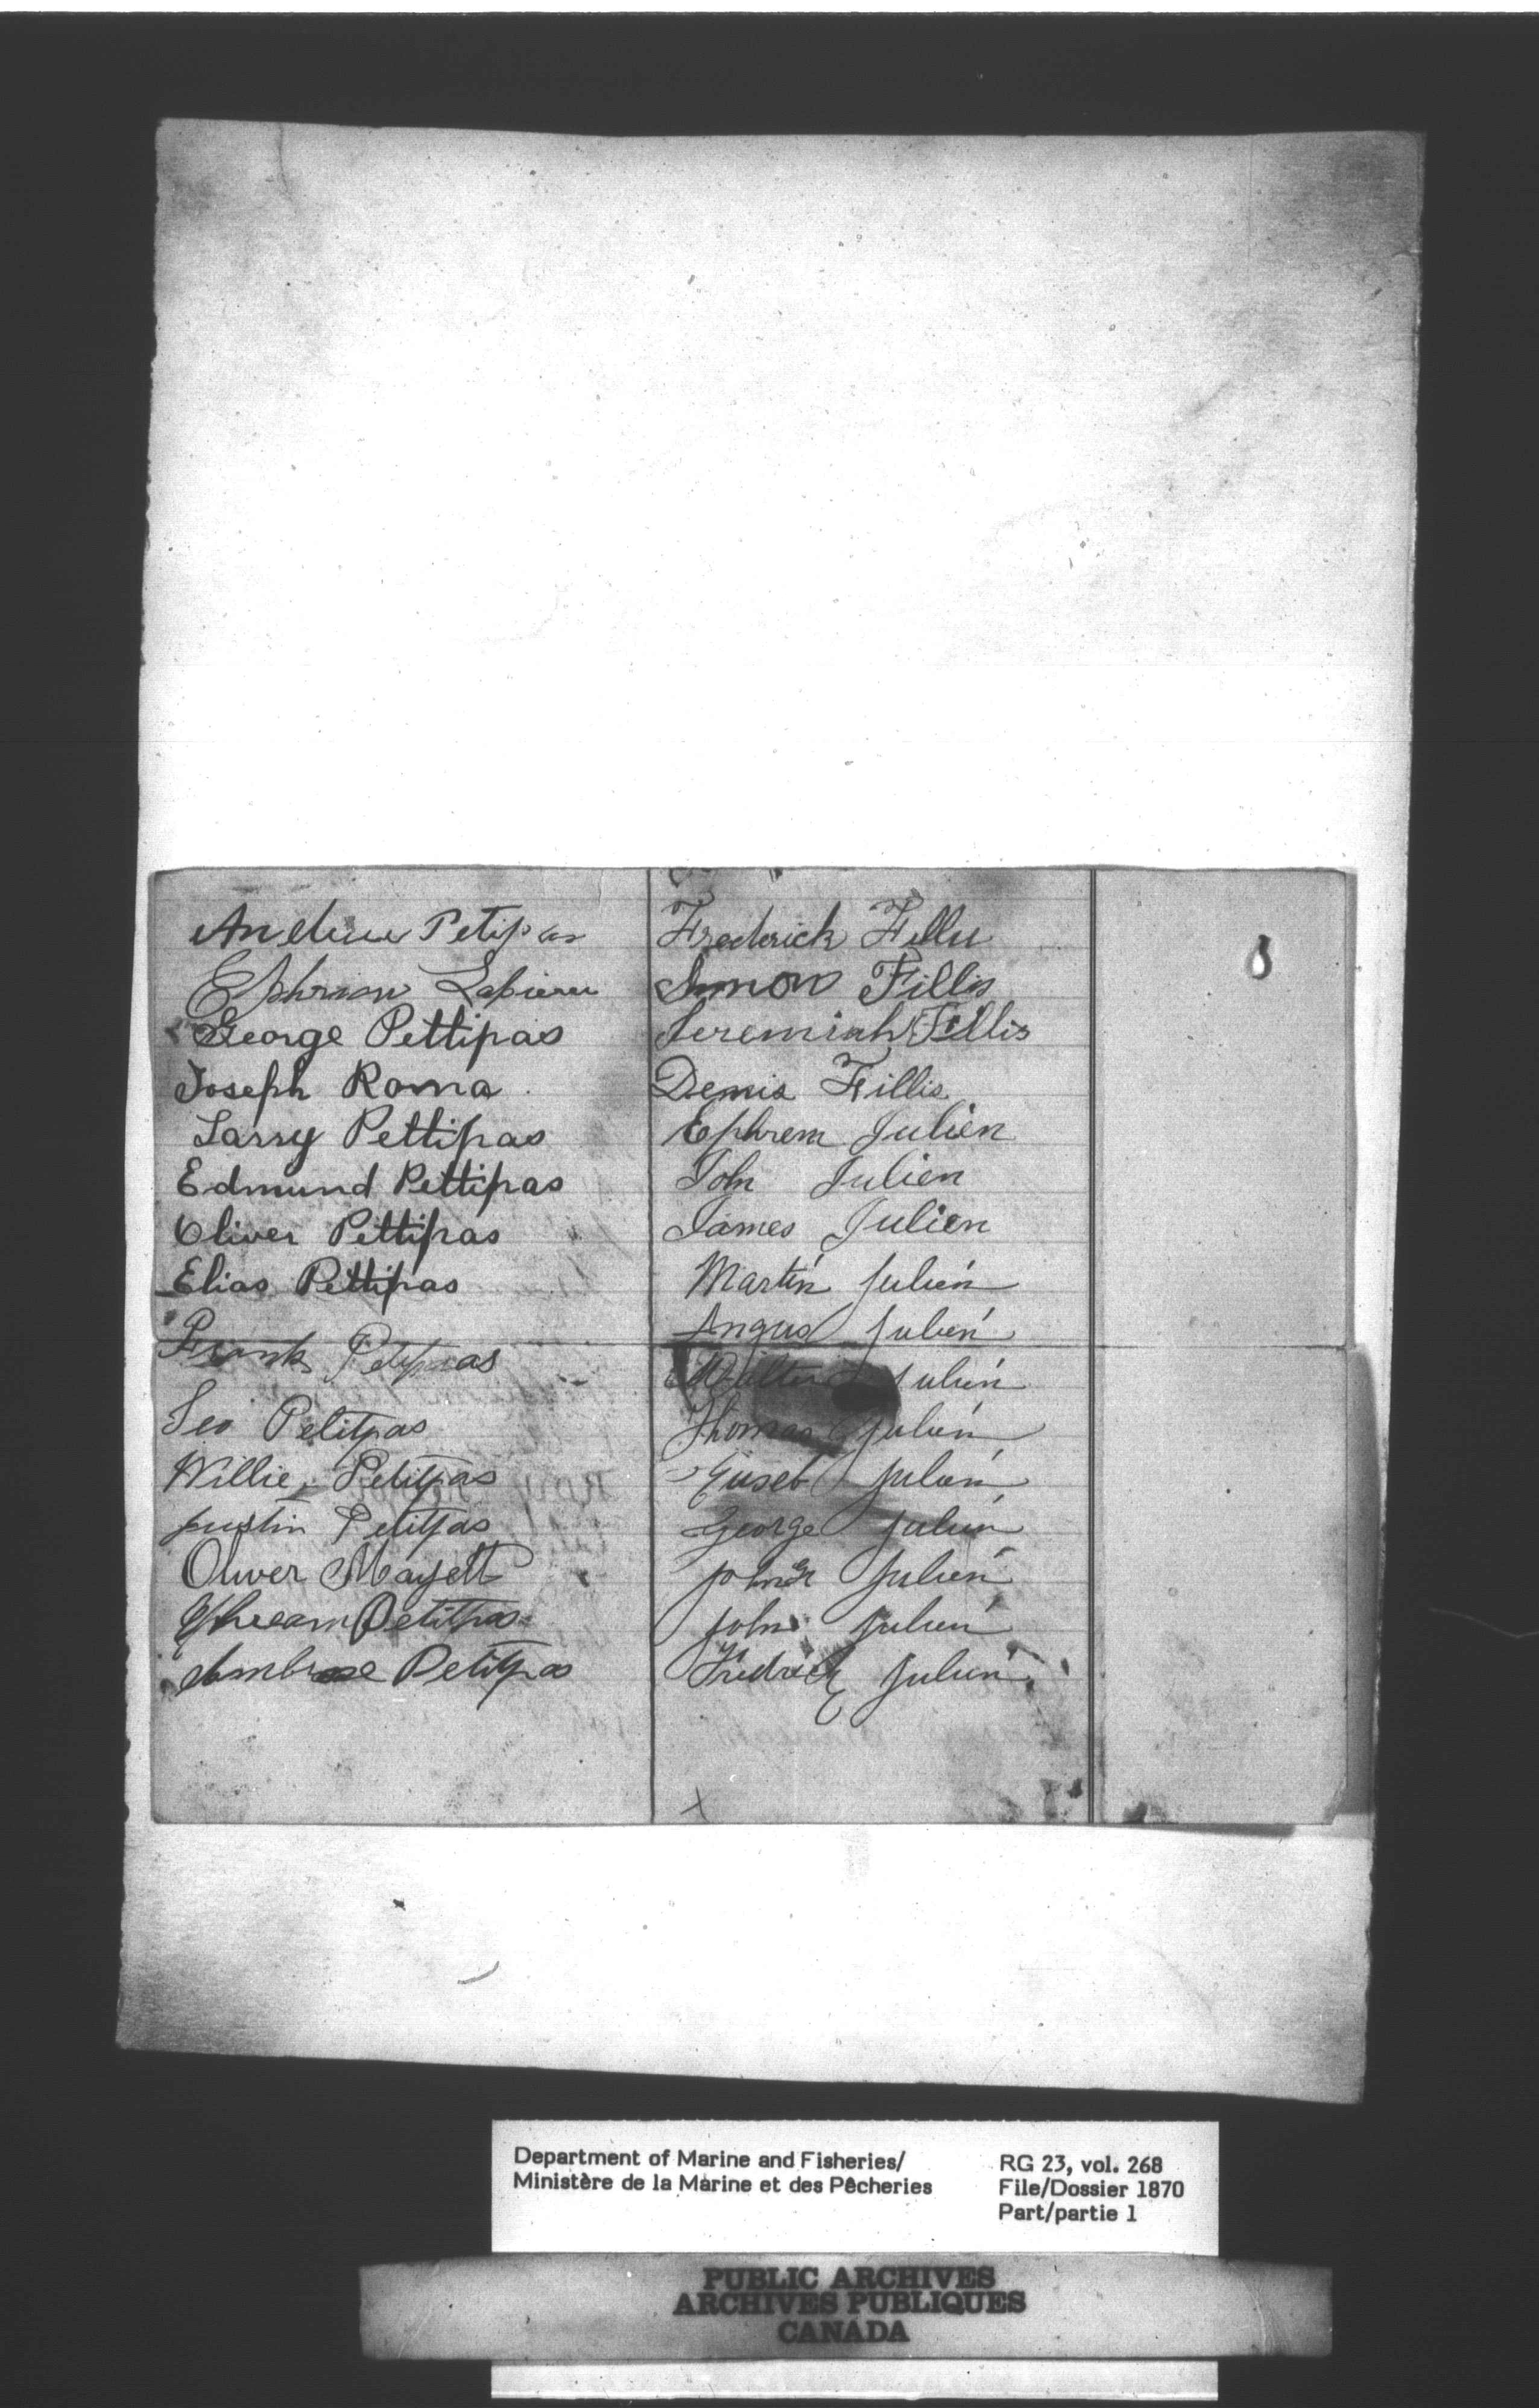 Andrew Petipas
Ephriam Lapierre
George Pettipas
Joseph Roma
Larry Pettipas
Edmund Pettipas
Oliver Pettipas
Elias Pettipas
Frank Petitpas
Leo Petitpas
Willie Petitpas
Justin Petitpas
Oliver Mayett
Ephream Petitpas
Ambrose Petitpas
Frederick Fillis
Simon Fillis
Jeremiah Fillis
Denis Fillis
Ephrem Julien
John Julien
James Julien
Martin Julien
Angus Julien
Walter Julien
Thomas Julien
Euseb Julien
George Julien
Julien
John Julien
Fredrick Julien
Department of Marine and Fisheries/
Ministère de la Marine et des Pêcheries
RG 23, vol. 268
File/Dossier 1870
Part/partie 1
PUBLIC ARCHIVES
ARCHIVES PUBLIQUES
CANADA